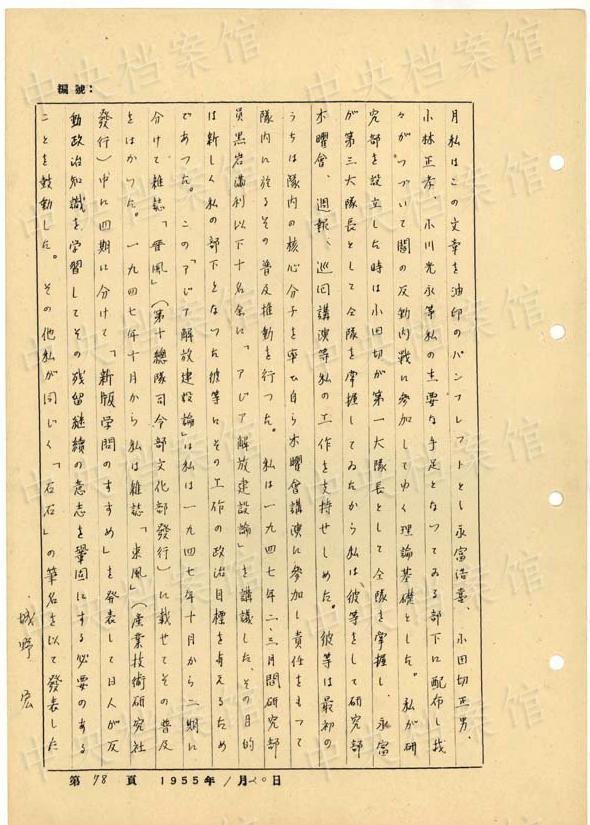 編號:
月私はこの文章を油印のパンフレットとし永富浩喜、小田切正男、
小林正孝、小川光永等私の主要な手足となつてゐる部下に配布し我
々がつづいて閻の反動内戦に参加してゆく理論基礎とした。私が研
究部を設立した時は小田切が第一大隊長として全隊を掌握し、永富
が第三大隊長として全隊を掌握してゐたから私は、彼等をして研究部
木曜會、週報、巡回講演等私の工作を支持せしめた。彼等は最初の
うちは隊内の核心分子を率ひ自ら木曜會講演に参加し責任をもつて
隊内に於るその普及推動を行つた。私は一九四七年二、三月間研究部
員黒岩満利以下十名余に「アジア解放建設論」を講議した、その目的
は新しく私の部下となつた彼等にその工作の政治目標を与えるため
であつた。この「アジア解放建設論」は私は一九四七年十月から二期に
分けて雑誌「晋風」(第十総隊司令部文化部發行)に載せてその普及
をはかつた。一九四七年十月から私は雑誌「東風」(産業技術研究社
發行)中に四期に分けて「新版学問のすすめ」を発表して日人が反
動政治知識を学習してその残留継續の意志を鞏固にする必要のある
ことを鼓動した。その他私が同じく「石石」の筆名を以て發表した
城野 宏
第78頁 1955年1月20日
中央档案馆